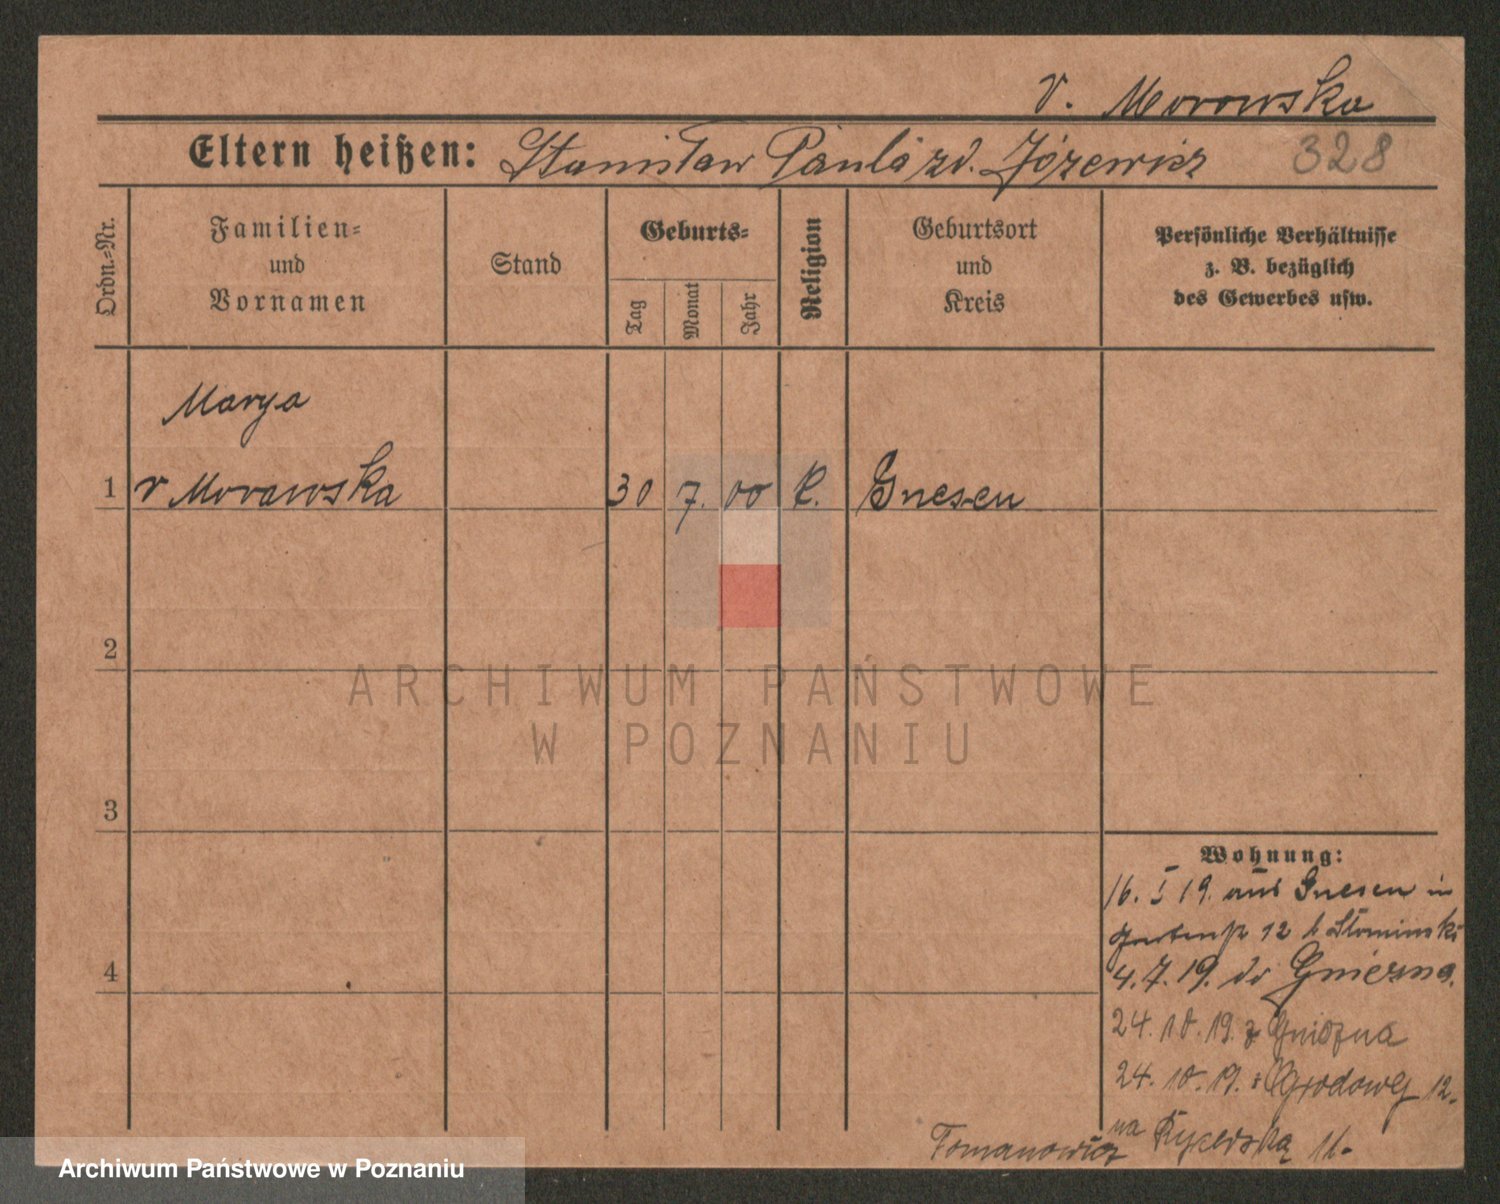 v. Morowska
Eltern heißen: Stanisław Paula zd. Józewicz
328
Ordn.-Nr.
Familien-
und
Vornamen
Stand
Geburts-
Tag
Monat
Jahr
Religion
Geburtsort
und
Kreis
Persönliche Verhältnisse
z. B. bezüglich
des Gewerbes usw.
Marya
1 v Morawska 30 7. 00 K. Gnesen
2
3
4
ARCHIWUM PAŃSTWOWE
W POZNANIU
Wohnung:
16. I 19. aus Gnesen in
12 b Słominski
4. 7. 19. do Gniezna.
24. 10. 19. z Gniezna
24. 10. 19. Grodowej 12.
na Rycerską 11.
Tomanowicz
Archiwum Państwowe w Poznaniu